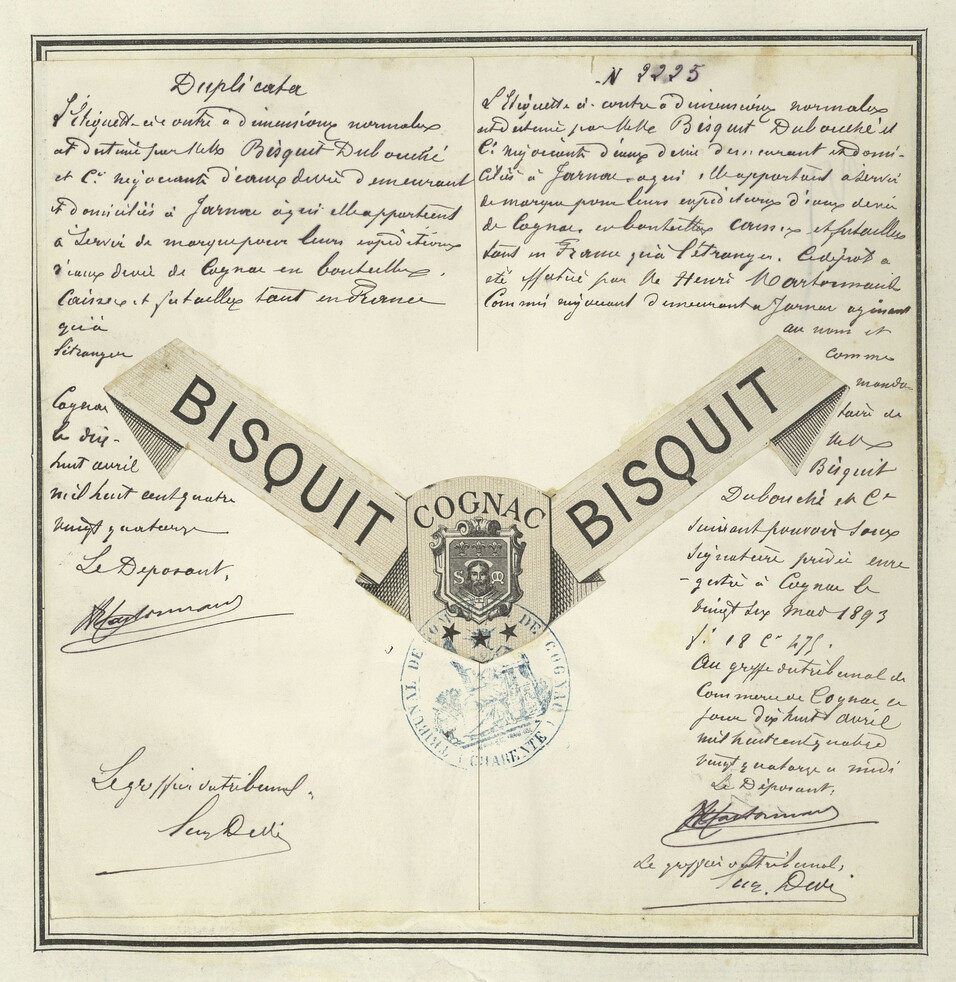 Duplicata
L'Etiquette ci contre à dimensions normales
est destiné par MM Bisquit Dubouché
et Cie négociants d'eaux de vie demeurant
et domiciliés à Jarnac à qui elle appartient
à servir de marque pour leurs expéditions
d'eaux de vie de Cognac en bouteilles,
Caisses et futailles tant en France
qu'à
l'étranger
Cognac
le dix-
huit avril
mil huit cent quatre
vingt quatorze
Le Déposant,
HMartonnaud
Le greffier du tribunal,
N 2225
L'Etiquette ci-contre à dimensions normales
est destiné par MM Bisquit Dubouché et
Cie négociants d'eaux de vie demeurant et domi-
ciliés à Jarnac à qui elle appartient à servir
de marque pour leurs expéditions d'eaux de vie
de Cognac en bouteilles caisses et futailles
tant en France qu'à l'étranger. Ce dépôt a
été effectué par M Henri Martonnaud
Commis négociant demeurant à Jarnac agissant
au nom et
comme
manda-
taire de
MM
Bisquit
Dubouché et Cie
suivant pouvoir sous
signature privée enre
-gistré à Cognac le
vingt six mai 1893
f. 18 C 475.
Au greffe du tribunal de
Commerce de Cognac ce
jour dix huit avril
mil huit cent quatre
vingt quatorze à midi
Le Déposant,
HMartonnaud
Le greffier du tribunal,
BISQUIT
BISQUIT
COGNAC
S M
TRIBUNAL DE COM DE COGNAC
(CHARENTE)